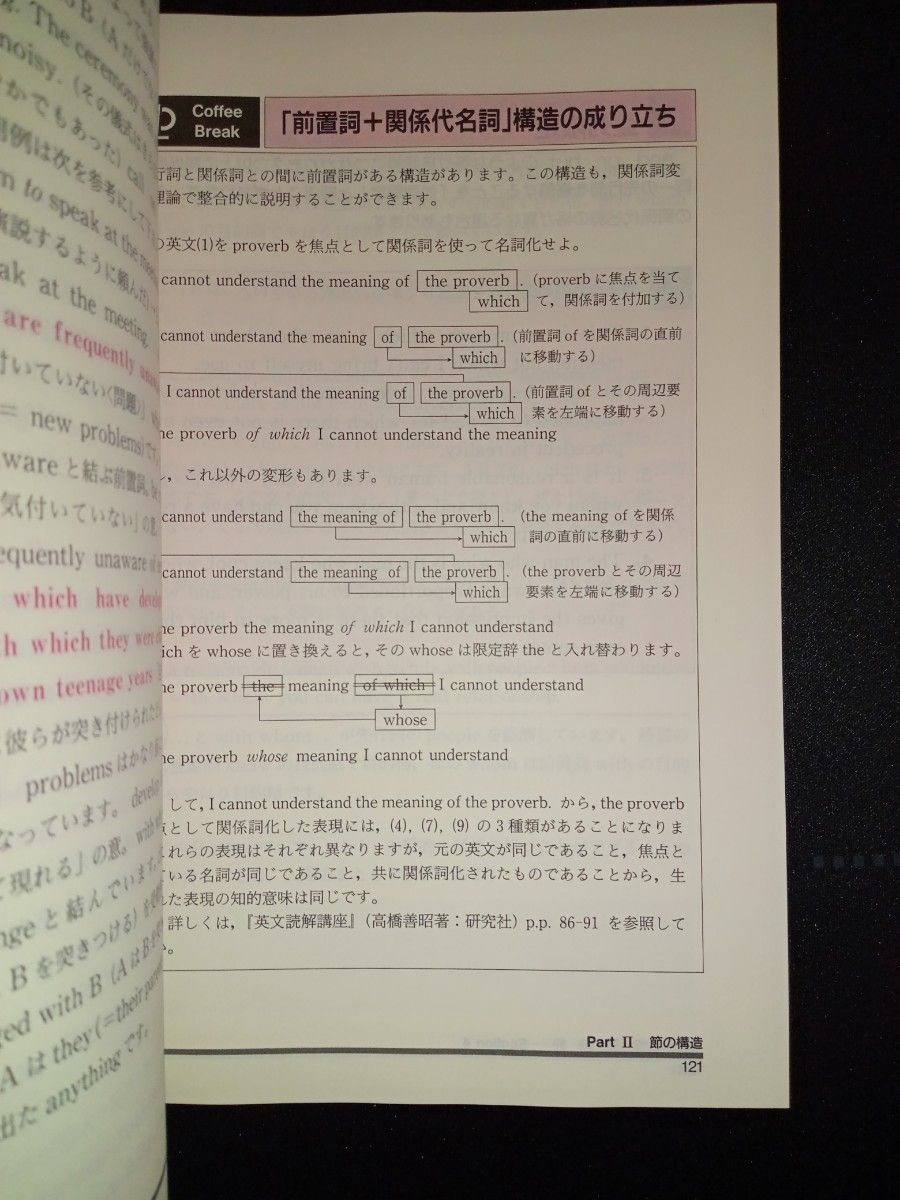 B (A
The ceremony
noisy. (その儀式は
かでもあった) call
用例は次を参考にして
to speak at the
演説するように頼んだ
ak at the meeting.
are frequently
付いていない〈問題〉
= new problems)です
wareと結ぶ前置詞。
気付いていない」の意
equently unaware of
which have
h which they were
own teenage years
彼らが突き付けられた
problemsはかなり
なっています。
て現れる」の意。with
nge と結んでいます。
B を突きつける)
ed with B (A はB
A は they (=their
出た anything です。
Coffee
Break
「前置詞＋関係代名詞」構造の成り立ち
行詞と関係詞との間に前置詞がある構造があります。この構造も，関係詞変
理論で整合的に説明することができます。
の英文(1)を proverb を焦点として関係詞を使って名詞化せよ。
cannot understand the meaning of the proverb . (proverb に焦点を当て
which て，関係詞を付加する)
cannot understand the meaning of the proverb . (前置詞 of を関係詞の直前
which に移動する)
I cannot understand the meaning of the proverb . (前置詞 of とその周辺要
which 素を左端に移動する)
he proverb of which I cannot understand the meaning
，これ以外の変形もあります。
cannot understand the meaning of the proverb . (the meaning of を関係
which 詞の直前に移動する)
cannot understand the meaning of the proverb . (the proverb とその周辺
which 要素を左端に移動する)
he proverb the meaning of which I cannot understand
ich を whose に置き換えると，その whose は限定辞 the と入れ替わります。
he proverb the meaning of which I cannot understand
whose
he proverb whose meaning I cannot understand
して，I cannot understand the meaning of the proverb. から，the proverb
点として関係詞化した表現には，(4)，(7)，(9) の3種類があることになりま
これらの表現はそれぞれ異なりますが，元の英文が同じであること，焦点と
ている名詞が同じであること，共に関係詞化されたものであることから，生
れた表現の知的意味は同じです。
詳しくは，『英文読解講座』(高橋善昭著：研究社) p.p. 86-91 を参照して
い。
Part Ⅱ 節の構造
121